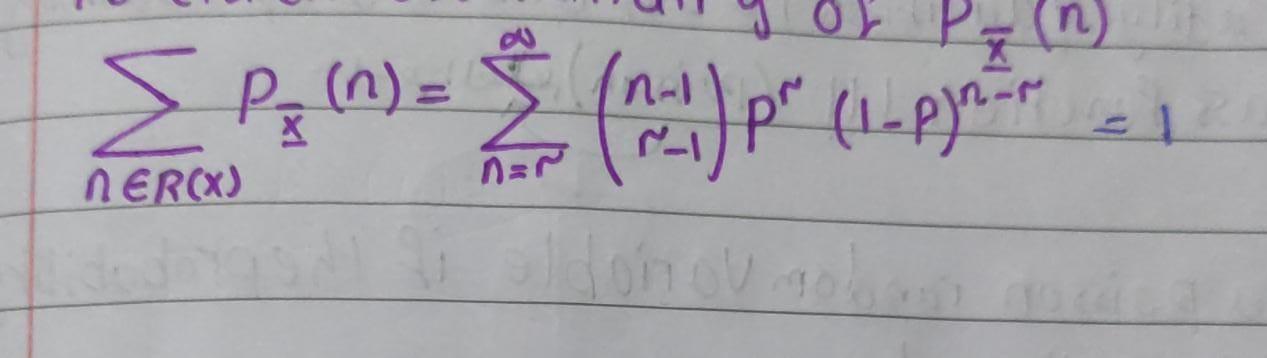 of P_X (n)
∑_{n∈R(X)} P_X (n) = ∑_{n=r}^{∞} (n-1 r-1) p^r (1-p)^{n-r} = 1